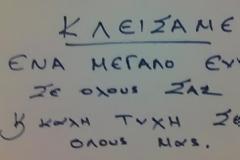 ΚΛΕΙΣΑΜΕ
ΕΝΑ ΜΕΓΑΛΟ
ΣΕ ΟΛΟΥΣ ΣΑΣ
ΚΑΛΗ ΤΥΧΗ ΣΕ
ΟΛΟΥΣ ΜΑΣ.